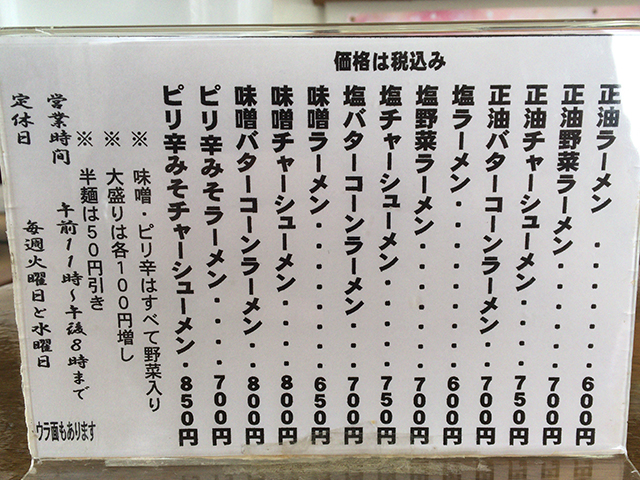 価格は税込み
正油ラーメン......600円
正油野菜ラーメン....700円
正油チャーシューメン..750円
正油バターコーンラーメン.700円
塩ラーメン.......600円
塩野菜ラーメン.....700円
塩チャーシューメン...750円
塩バターコーンラーメン..700円
味噌ラーメン......650円
味噌チャーシューメン..800円
味噌バターコーンラーメン.800円
ピリ辛みそラーメン...700円
ピリ辛みそチャーシューメン.850円
※ 味噌・ピリ辛はすべて野菜入り
※ 大盛りは各100円増し
※ 半麺は50円引き
営業時間 午前11時~午後8時まで
定休日 毎週火曜日と水曜日
ウラ面もあります